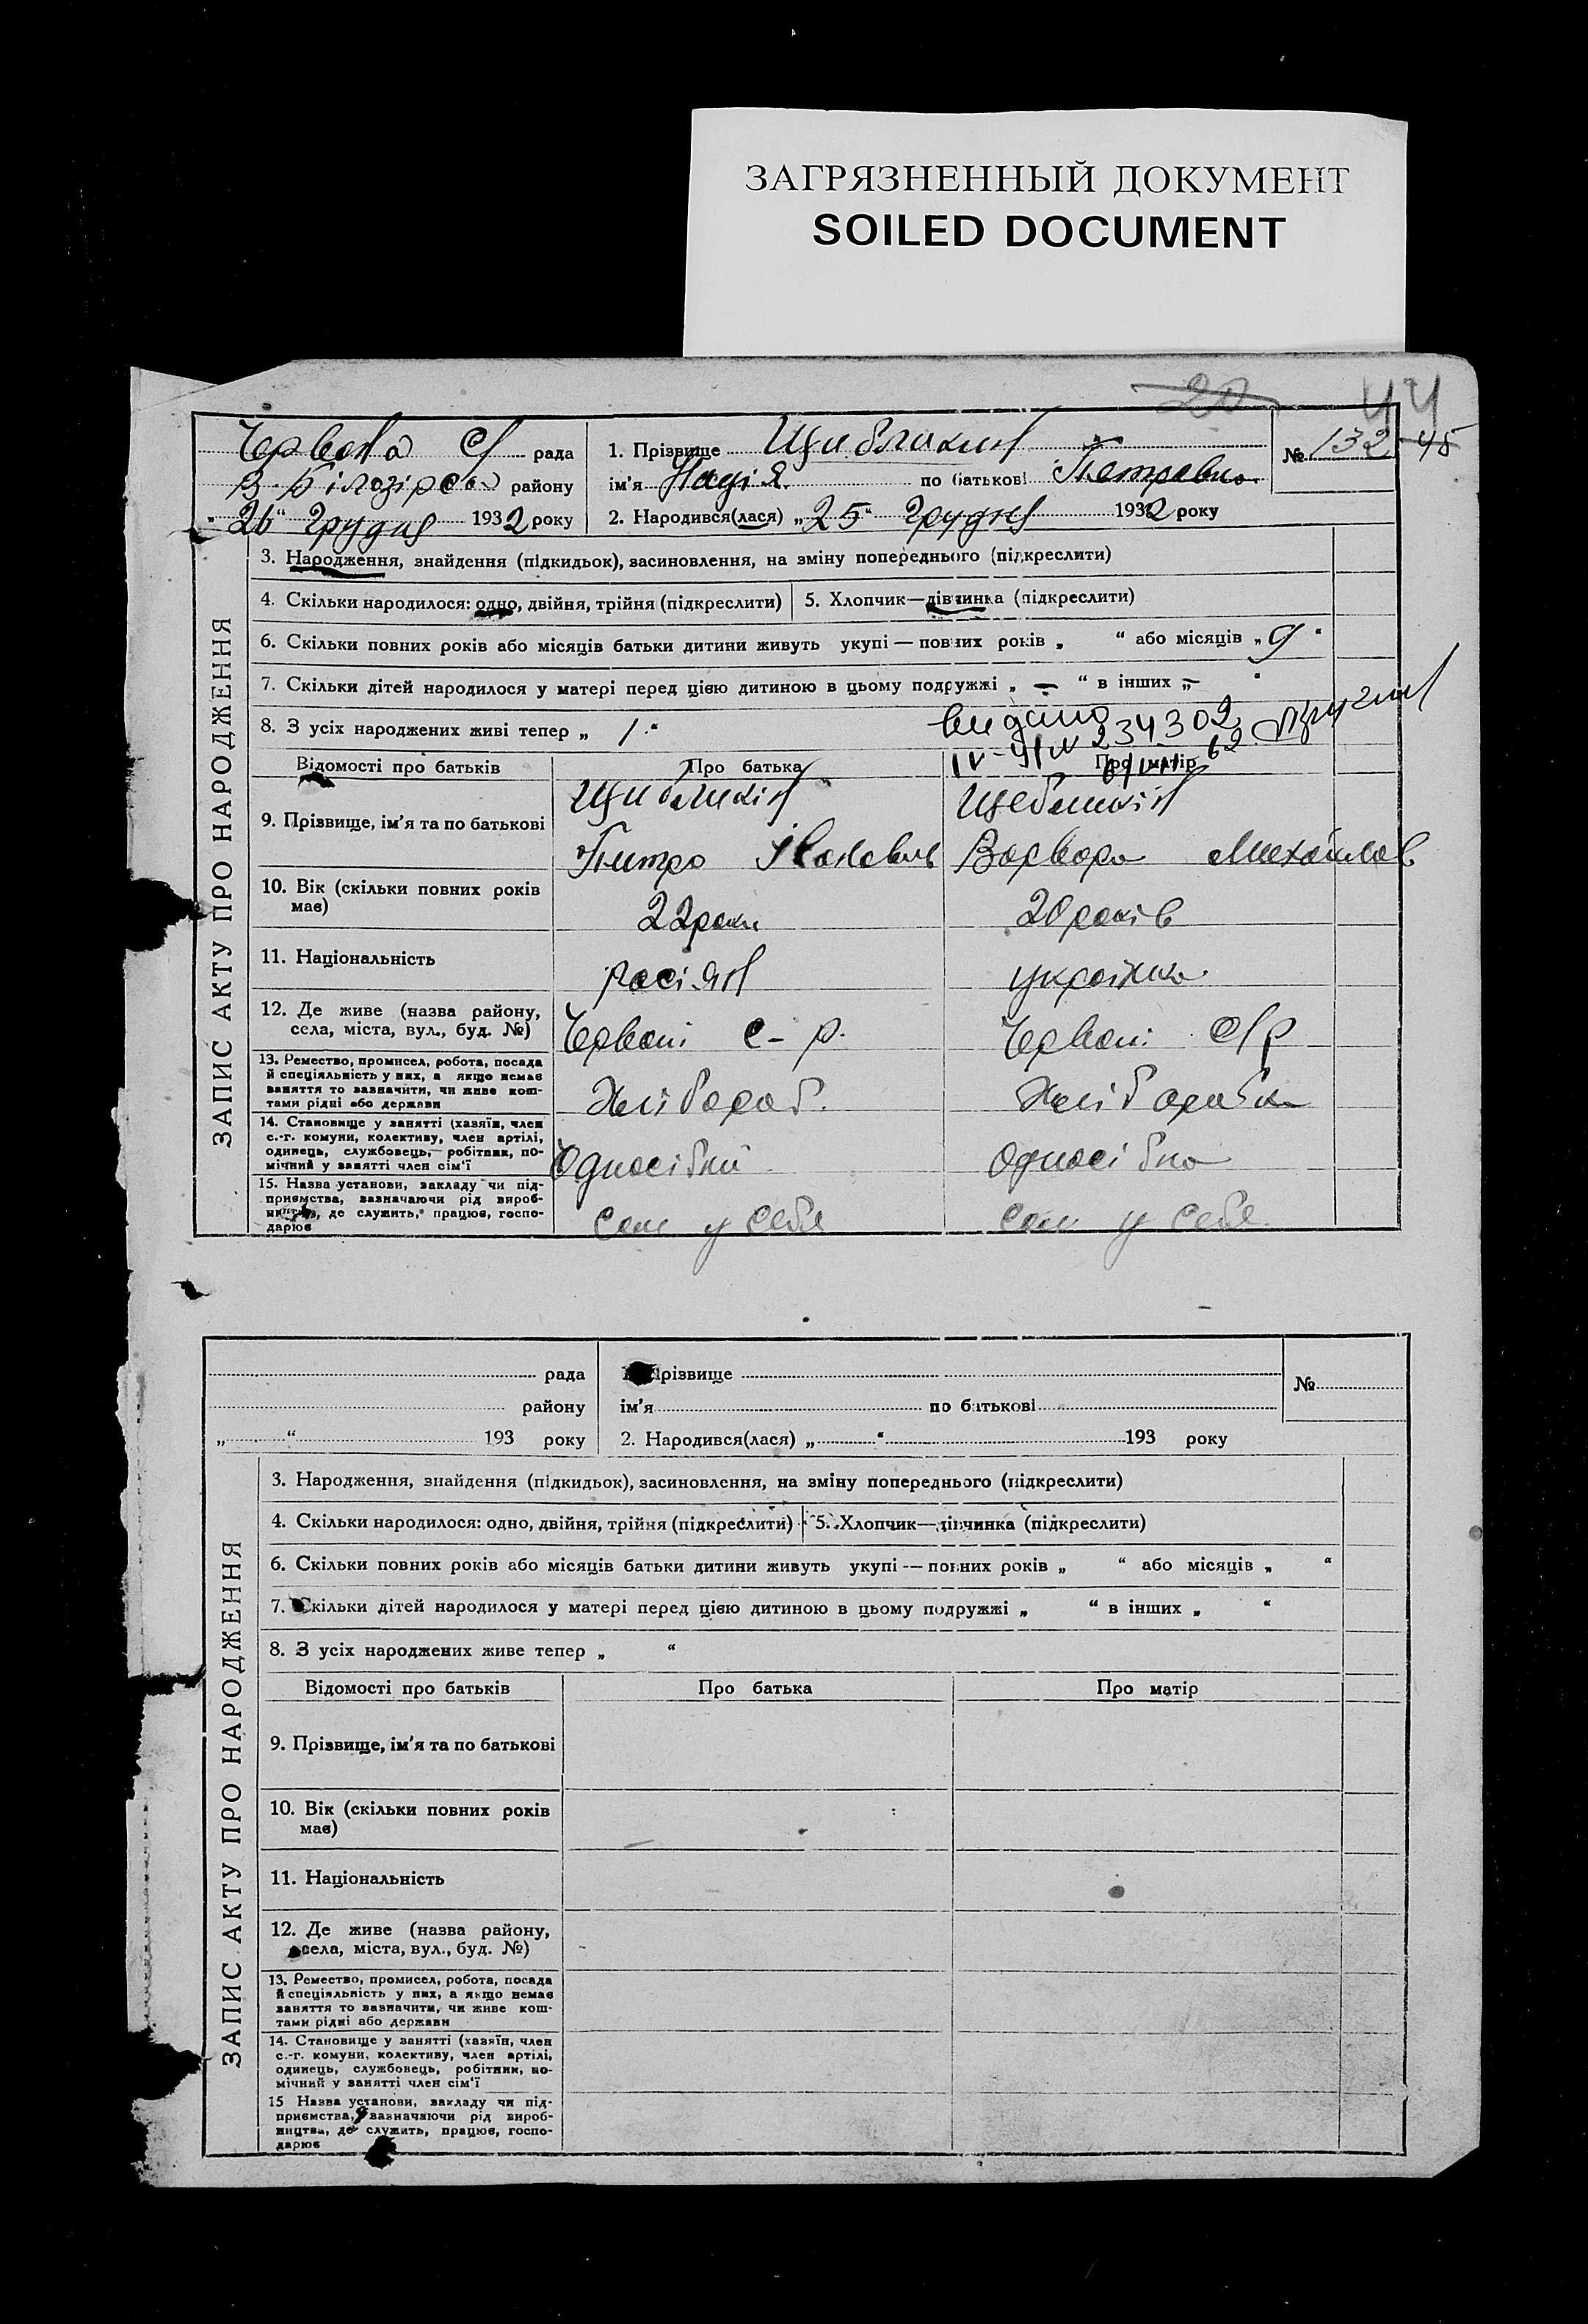 ЗАГРЯЗНЕННЫЙ ДОКУМЕНТ
SOILED DOCUMENT
20 44
Червона С/ рада
В. Білозірськ району
"26" Грудня 1932 року
1. Прізвище Щибликин
ім'я Надія по батькові Петровна
2. Народився(лася) „25" Грудня 1932 року
№ 132 45
ЗАПИС АКТУ ПРО НАРОДЖЕННЯ
3. Народження, знайдення (підкидьок), засиновлення, на зміну попереднього (підкреслити)
4. Скільки народилося: одно, двійня, трійня (підкреслити) 5. Хлопчик—дівчинка (підкреслити)
6. Скільки повних років або місяців батьки дитини живуть укупі — повних років „ " або місяців „9"
7. Скільки дітей народилося у матері перед цією дитиною в цьому подружжі „ — " в інших „ — "
8. З усіх народжених живі тепер „ 1 "
видано
234302
62
Відомості про батьків Про батька Про матір
9. Прізвище, ім'я та по батькові
Щибликін Щебликін
Питро Іванович Варвара Михайлов
10. Вік (скільки повних років має)
22 роки 20 років
11. Національність
росіян українка
12. Де живе (назва району,
села, міста, вул., буд. №)
Червоні С-р. Червоні С/р
13. Ремество, промисел, робота, посада
й спеціяльність у них, а якщо немає
заняття то зазначити, чи живе кош-
тами рідні або держави
Хлібороб. Хліборобка
14. Становище у занятті (хазяїн, член
с.-г. комуни, колективу, член артілі,
одинець, службовець, робітник, по-
мічний у занятті член сім'ї
Односібний Односібна
15. Назва установи, закладу чи під-
приємства, зазначаючи рід вироб-
ництва, де служить, працює, госпо-
дарює
Сам у себя Сам у себе
рада
району
„ " 193 року
Прізвище
ім'я по батькові
2. Народився(лася) „ " 193 року
№
ЗАПИС АКТУ ПРО НАРОДЖЕННЯ
3. Народження, знайдення (підкидьок), засиновлення, на зміну попереднього (підкреслити)
4. Скільки народилося: одно, двійня, трійня (підкреслити) 5. Хлопчик—дівчинка (підкреслити)
6. Скільки повних років або місяців батьки дитини живуть укупі — повних років „ " або місяців „ "
7. Скільки дітей народилося у матері перед цією дитиною в цьому подружжі „ " в інших „ "
8. З усіх народжених живе тепер „ "
Відомості про батьків Про батька Про матір
9. Прізвище, ім'я та по батькові
10. Вік (скільки повних років
має)
11. Національність
12. Де живе (назва району,
села, міста, вул., буд. №)
13. Ремество, промисел, робота, посада
й спеціяльність у них, а якщо немає
заняття то зазначити, чи живе кош-
тами рідні або держави
14. Становище у занятті (хазяїн, член
с.-г. комуни, колективу, член артілі,
одинець, службовець, робітник, по-
мічний у занятті член сім'ї
15 Назва установи, закладу чи під-
приємства, зазначаючи рід вироб-
ництва, де служить, працює, госпо-
дарює